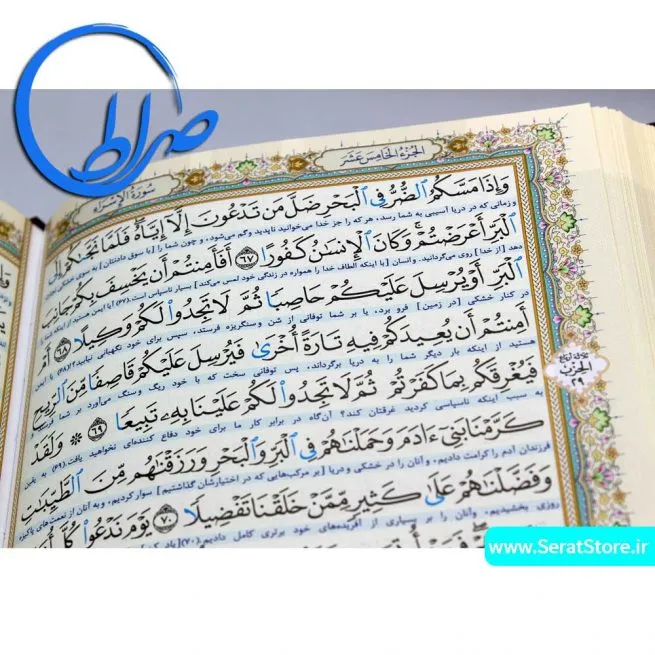 صراط
الجزء الخامس عشر
سورة الإسراء
وَإِذَا مَسَّكُمُ الضُّرُّ فِي الْبَحْرِ ضَلَّ مَن تَدْعُونَ إِلَّآ إِيَّاهُ فَلَمَّا نَجَّىٰكُمْ إِلَى
و زمانی که در دریا آسیبی به شما رسد، هر که را جز خدا می‌خوانید ناپدید و گم می‌شود، و چون شما را [با سوق دادنتان] به سوی خشکی نجات
الْبَرِّ أَعْرَضْتُمْ ۚ وَكَانَ الْإِنسَٰنُ كَفُورًا ﴿٦٧﴾ أَفَأَمِنتُمْ أَن يَخْسِفَ بِكُمْ جَانِبَ
دهد [از خدا] روی می‌گردانید. و انسان [با اینکه الطاف خدا را همواره در زندگی خود لمس می‌کند] بسیار ناسپاس است.(۶۷) آیا ایمن هستید از اینکه شما را
الْبَرِّ أَوْ يُرْسِلَ عَلَيْكُمْ حَاصِبًا ثُمَّ لَا تَجِدُوا لَكُمْ وَكِيلًا ﴿٦٨﴾ أَمْ
در کنار خشکی [در زمین] فرو برد، یا بر شما توفانی از شن و سنگریزه فرستد، سپس برای خود نگهبانی نیابید؟(۶۸) یا ایمن
أَمِنتُمْ أَن يُعِيدَكُمْ فِيهِ تَارَةً أُخْرَىٰ فَيُرْسِلَ عَلَيْكُمْ قَاصِفًا مِّنَ الرِّيحِ
هستید از اینکه بار دیگر شما را به دریا برگرداند، پس توفانی سخت که با خود ریگ و سنگ می‌آورد بر شما فرستد و
فَيُغْرِقَكُم بِمَا كَفَرْتُمْ ثُمَّ لَا تَجِدُوا لَكُمْ عَلَيْنَا بِهِ تَبِيعًا ﴿٦٩﴾ ۞ وَلَقَدْ
به سبب اینکه ناسپاسی کردید غرقتان کند؟ آن‌گاه در برابر کار ما برای خود دفاع کننده‌ای نخواهید یافت.(۶۹) به یقین
كَرَّمْنَا بَنِيٓ ءَادَمَ وَحَمَلْنَٰهُمْ فِي الْبَرِّ وَالْبَحْرِ وَرَزَقْنَٰهُم مِّنَ الطَّيِّبَٰتِ
فرزندان آدم را کرامت دادیم، و آنان را در خشکی و دریا [بر مرکب‌هایی که در اختیارشان گذاشتیم] سوار کردیم، و به آنان از نعمت‌های پاکیزه
وَفَضَّلْنَٰهُمْ عَلَىٰ كَثِيرٍ مِّمَّنْ خَلَقْنَا تَفْضِيلًا ﴿٧٠﴾ يَوْمَ نَدْعُوا كُلَّ
روزی بخشیدیم، و آنان را بر بسیاری از آفریده‌های خود برتری کامل دادیم.(۷۰) [یاد کن]
الحزب
٢٩
www.SeratStore.ir